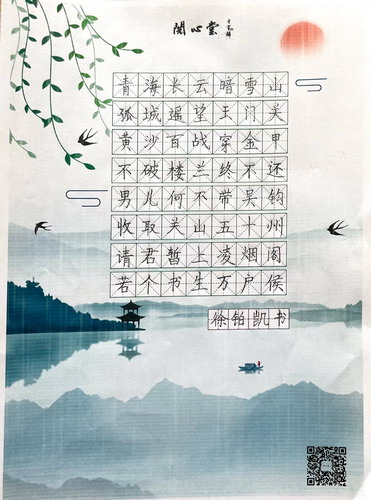 開心堂
青海长云暗雪山
孤城遥望玉门关
黄沙百战穿金甲
不破楼兰终不还
男儿何不带吴钩
收取关山五十州
请君暂上凌烟阁
若个书生万户侯
徐铂凯书